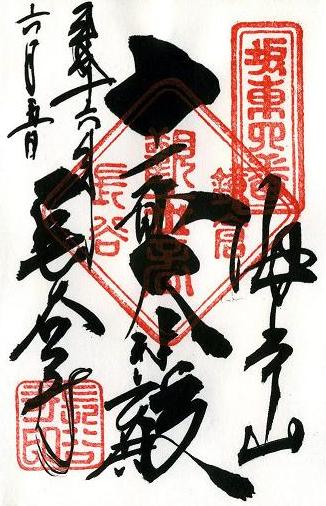 坂東四番
海光山
鎌倉
観世音
長谷
十一面大悲殿
長谷寺
平成十六年
六月五日